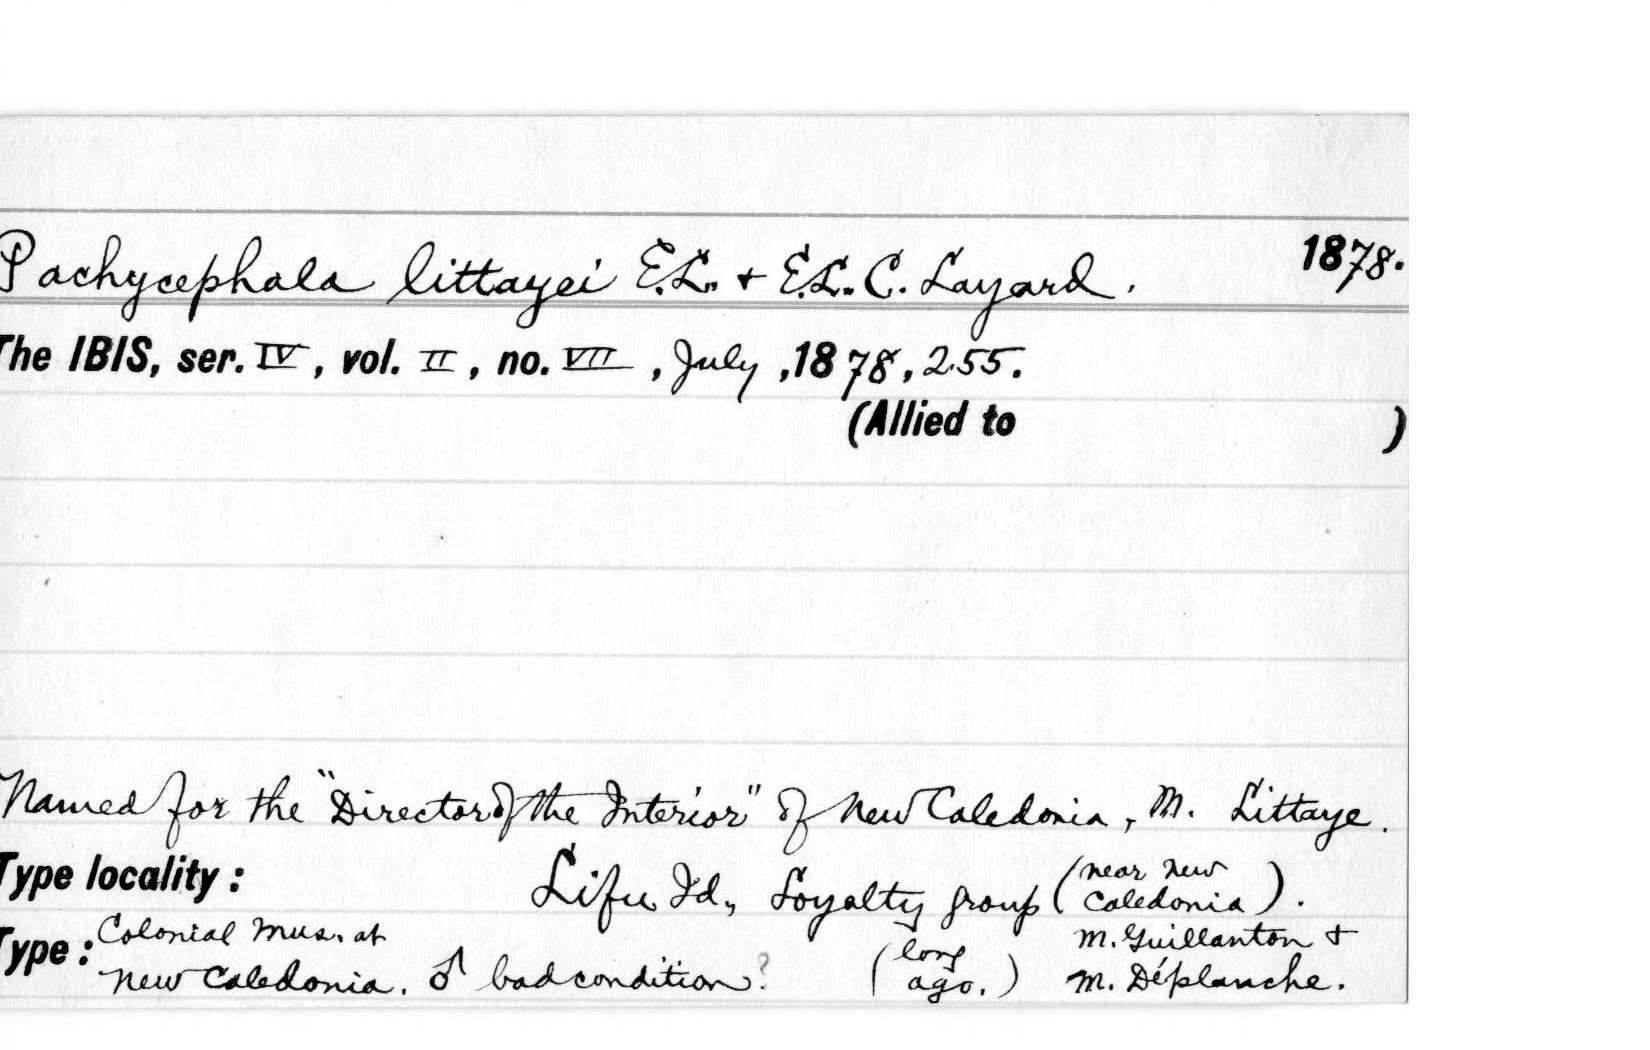 Pachycephala littayei E.L. + E.L.C. Layard. 1878.
The IBIS, ser. IV, vol. II, no. VII, July, 1878, 255.
(Allied to )
Named for the "Director of the Interior" of New Caledonia, M. Littaye.
Type locality: Lifu Id., Loyalty group (near New Caledonia).
Type: Colonial Mus. at New Caledonia. ♂ bad condition? (long ago.) M. Guillanton + M. Déplanche.